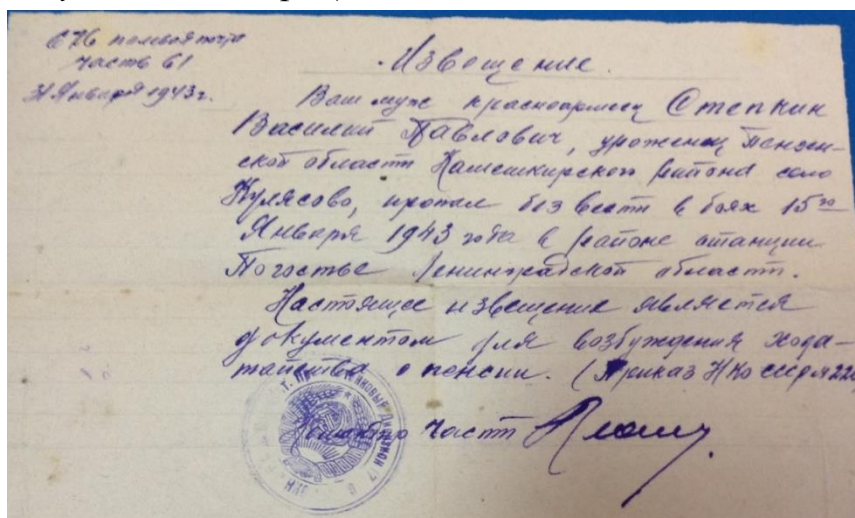 676 полевая почта
часть 61
31 Января 1943 г.
Извещение.
Ваш муж красноармеец Степкин
Василий Павлович, уроженец Пензен-
ской области Камешкирского района село
Кулясово, пропал без вести в боях 15го
Января 1943 года в районе станции
Погостье Ленинградской области.
Настоящее извещение является
документом для возбуждения хода-
тайства о пенсии. (Приказ НКО СССР № 220
части
Дивизион